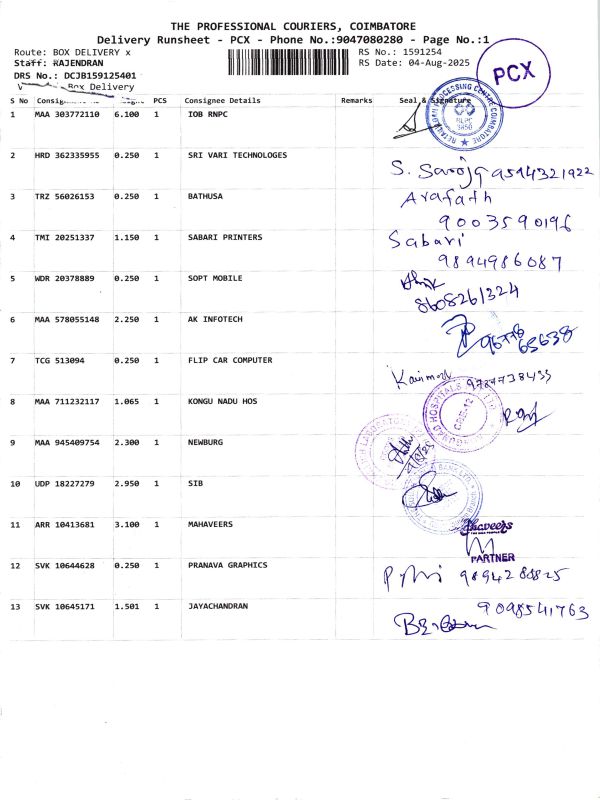 THE PROFESSIONAL COURIERS, COIMBATORE
Delivery Runsheet - PCX - Phone No.:9047080280 - Page No.:1
Route: BOX DELIVERY x
RS No.: 1591254
Staff: RAJENDRAN
RS Date: 04-Aug-2025
DRS No.: DCJB159125401
Box Delivery
PCX
S No PCS Consignee Details Remarks Seal & Signature
1 MAA 303772110 6.100 1 IOB RNPC
2 HRD 362335955 0.250 1 SRI VARI TECHNOLOGES
S. Saroja 9514321922
3 TRZ 56026153 0.250 1 BATHUSA
Arafath
9003590196
4 TMI 20251337 1.150 1 SABARI PRINTERS
Sabari
9894986087
5 WDR 20378889 0.250 1 SOPT MOBILE
8608261324
6 MAA 578055148 2.250 1 AK INFOTECH
7 TCG 513094 0.250 1 FLIP CAR COMPUTER
8 MAA 711232117 1.065 1 KONGU NADU HOS
9 MAA 945409754 2.300 1 NEWBURG
10 UDP 18227279 2.950 1 SIB
11 ARR 10413681 3.100 1 MAHAVEERS
PARTNER
12 SVK 10644628 0.250 1 PRANAVA GRAPHICS
13 SVK 10645171 1.501 1 JAYACHANDRAN
9098541763